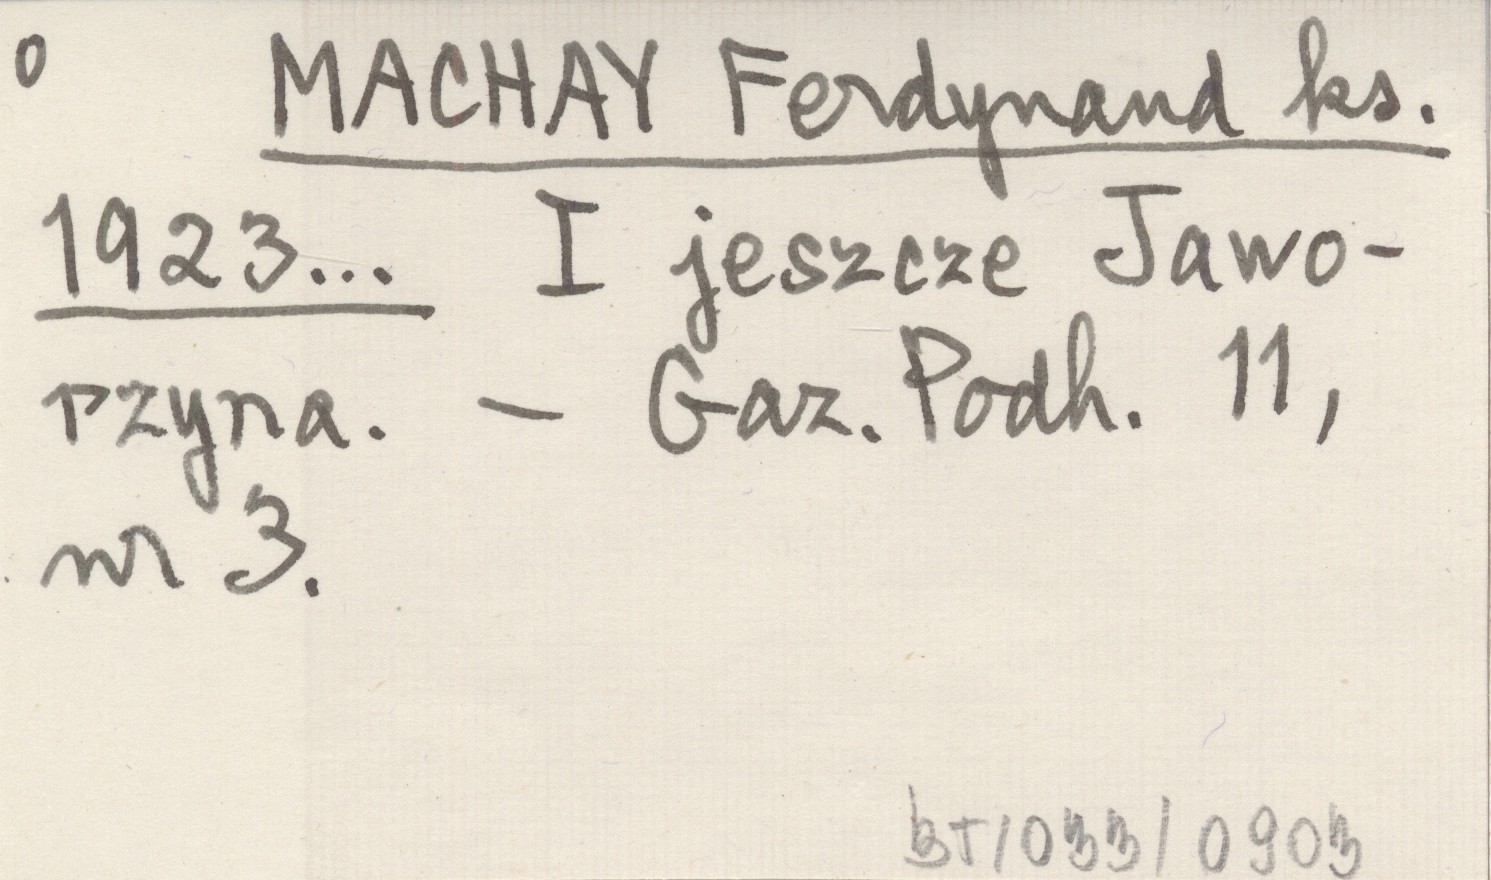 0 MACHAY Ferdynand ks.
1923... I jeszcze Jawo-
rzyna. - Gaz. Podh. 11,
nr 3.
BT/033/0903